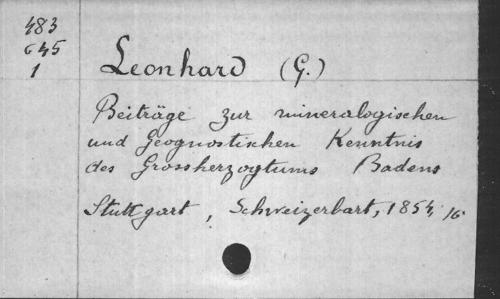 483
645
1
Leonhard (G.)
Beiträge zur mineralogischen
und Geognostischen Kenntnis
des Grossherzogtums Badens
Stuttgart, Schweizerbart, 1854, 16.